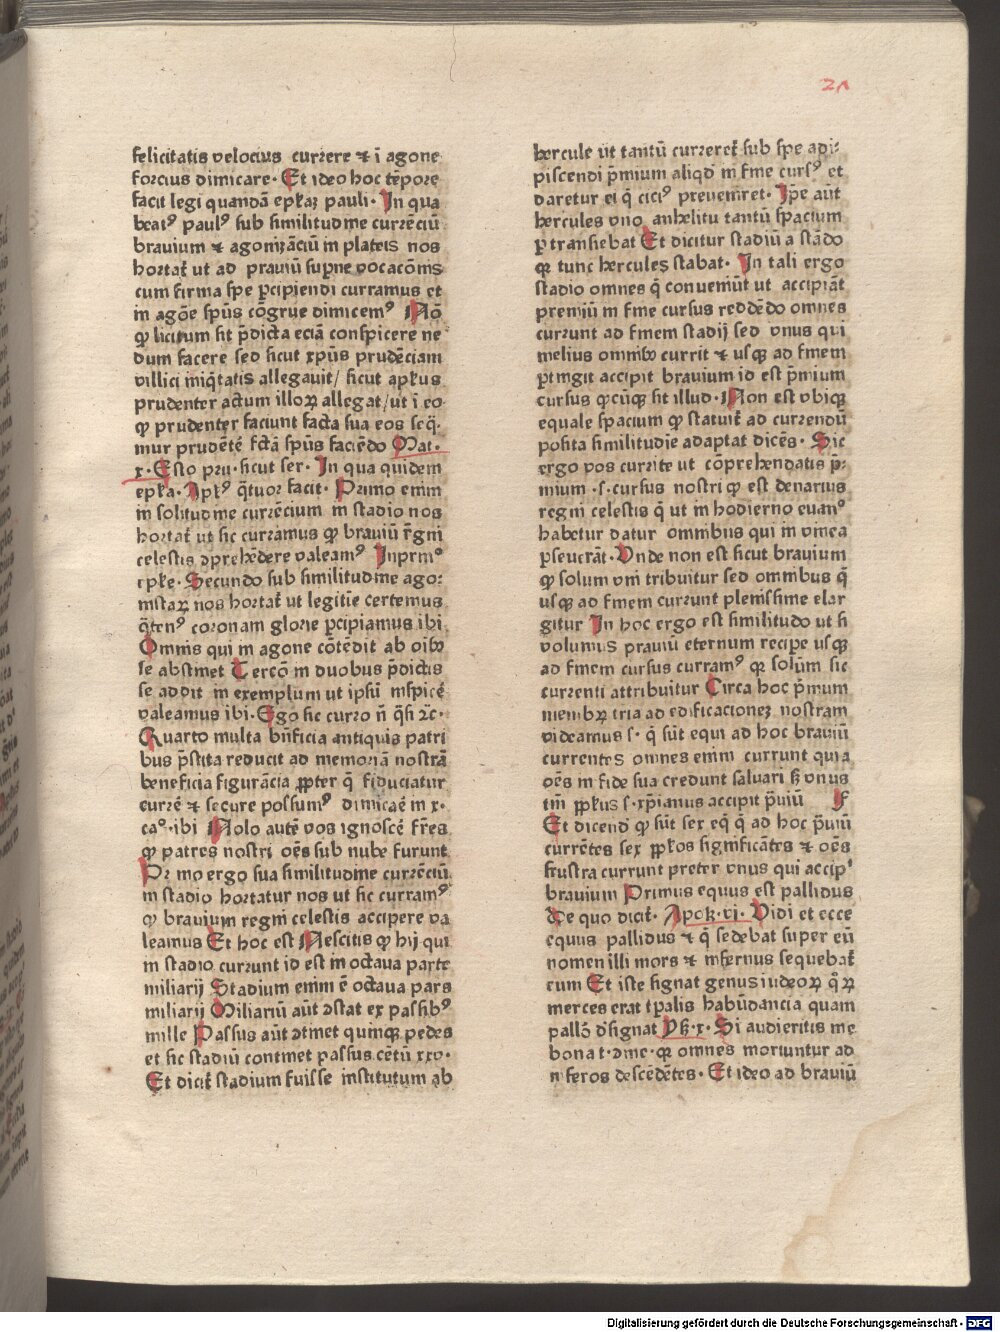 21
felicitatis velocius currere ⁊ ī agone
forcius dimicare· Et ideo hoc tēpore
facit legi quandā epłaʒ pauli· In qua
beatꝰ paulꝰ sub similitudine currēciū
brauium ⁊ agonizāciū in plateis nos
hortat̄ ut ad prauiū suꝑne vocacōnis
cum firma spe ꝑcipiendi curramus et
in agōe spūs cōgrue dimicemꝰ Nō
ꝙ licitum sit p̄dicta eciā conspicere ne
dum facere sed sicut xp̄us prudēciam
villici iniq̄tatis allegauit/ sicut apłus
prudenter actum illoꝝ allegat/ut ī eo
ꝙ prudenter faciunt facta sua eos seq̄·
mur prudētē fctā spūs faciēdo Mat·
x· Esto pru· sicut ser· In qua quidem
epła· Apłꝰ q̄tuor facit· Primo enim
in solitudine currēcium in stadio nos
hortat̄ ut sic curramus ꝙ brauiū r̄gni
celestis ꝯprehēdere valeamꝰ Inprīnº
epłe· Secundo sub similitudine ago:
nistaꝝ nos hortat̄ ut legitie certemus
q̄tenꝰ coronam glorie ꝑcipiamus ibi
Omnis qui in agone cōtēdit ab oībꝫ
se abstinet Tercō in duobus p̄dictis
se addit in exemplum ut ipsū inspicē
valeamus ibi· Ego sic curro n̄ q̄si ⁊c·
Quarto multa bn̄ficia antiquis patri
bus p̄stita reducit ad memoriā nostrā
beneficia figurācia ꝓpter q̄ fiduciatur
currē ⁊ secure possumꝰ dimicaē in x·
caº· ibi Nolo autē vos ignoscē fr̄es
ꝙ patres nostri oēs sub nube furunt
Primo ergo sua similitudine currēciū
in stadio hortatur nos ut sic curramꝰ
ꝙ brauium regni celestis accipere va
leamus Et hoc est Nescitis ꝙ hij qui
in stadio currunt id est in octaua parte
miliarij Stadium enim ē octaua pars
miliarij Miliariū aūt ꝯstat ex passibꝰ
mille Passus aūt ꝯtinet quinqꝫ pedes
et sic stadiū continet passus cētū xxv·
Et dicit̄ stadium fuisse institutum ab
hercule ut tantū currerēt sub spe adi:
piscendi p̄mium aliqd in fine cursꝰ et
daretur ei q̄ ciciꝰ preuenīret· Ip̄e aūt
hercules vno anhelitu tantū spacium
ꝑtransiebat Et dicitur stadiū a stādo
qꝫ tunc hercules stabat· In tali ergo
stadio omnes q̄ conueniūt ut accipiāt
premiū in fine cursus reddēdo omnes
currunt ad finem stadij sed vnus qui
melius omnibꝫ currit ⁊ usqꝫ ad finem
ꝑtingit accipit brauium id est p̄mium
cursus qꝫcūqꝫ sit illud· Non est vbiqꝫ
equale spacium ꝙ statuit̄ ad currendū
posita similitudīe adaptat dicēs· Sic
ergo vos currite ut cōprehendatis p̄:
mium ·s· cursus nostri ꝙ est denarius
regni celestis q̄ ut in hodierno euanº
habetur datur omnibus qui in vinea
ꝑseuerāt· Vnde non est sicut brauium
ꝙ solum vni tribuitur sed omnibus q̄
usqꝫ ad finem currunt plenissime elar
gitur In hoc ergo est similitudo ut si
volumus prauiū eternum recipe usqꝫ
ad finem cursus curramꝰ qꝫ solūm sic
currenti attribuitur Circa hoc p̄mum
membꝝ tria ad edificacioneʒ nostram
videamus s· q̄ sūt equi ad hoc brauiū
currentes omnes enim currunt quia
oēs in fide sua credunt saluari sꝫ vnus
tm̄ ꝓpłus s· xp̄ianus accipit p̄uiū F
Et dicend̄ ꝙ sūt sex eq̄ q̄ ad hoc p̄uiū
currētes sex ꝓpłos significātes ⁊ oēs
frustra currunt preter vnus qui accipꝰ
brauium Primus equus est pallidus
de quo dicit̄· Apok·vi· Vidi et ecce
equus pallidus ⁊ q̄ sedebat super eū
nomen illi mors ⁊ infernus sequebat̄
eum Et iste signat genus iudeoꝝ q̄ꝝ
merces erat tꝑalis habūdancia quam
pallō d̄signat Pꝫ·x· Si audieritis me
bona t·ꝯme· qꝫ omnes moriuntur ad
nferos descēdētes· Et ideo ad brauiū
Digitalisierung gefördert durch die Deutsche Forschungsgemeinschaft · DFG